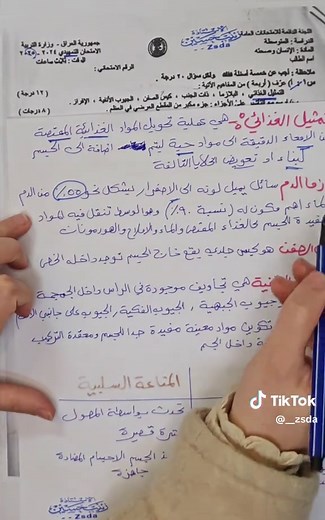 جمهورية العراق - وزارة التربية
اللجنة الدائمة للامتحانات العامة
الامتحان التمهيدي ٢٠٢٤ - ٢٠٢٥
الدراسة: المتوسطة
الوقت: ثلاث ساعات
المادة: الإنسان وصحته
الرقم الامتحاني:
اسم الطالب
ملاحظة: أجب عن خمسة أسئلة فقط، ولكل سؤال ٢٠ درجة.
عرّف (أربعة) من المفاهيم الآتية: (١٢ درجة)
التمثيل الغذائي، البلازما، ذات الجنب، كيس الصفن، الجيوب الأنفية، الإفراز.
الأجزاء: جزء مكبر من المقطع العرضي في العظم. (٨ درجات)
هي عملية تحويل المواد الغذائية الممتصة
من الأمعاء الدقيقة الى مواد حية ليتم اضافة الى الجسم
او تعويض الخلايا التالفة
سائل يميل لونه الى الاصفرار يشكل نحو ٥٥٪ من الدم
الماء اهم مكون له (نسبة ٩٠٪) وهو الوسط تنتقل فيه المواد
كالغذاء الممتص والماء والاملاح والهرمونات
الصفن هو كيس جلدي يقع خارج الجسم توجد داخله الخصى
هي تجاويف موجودة في الرأس داخل الجمجمة
الجيوب الجبهية، الجيوب الفكية، الجيوب على جانبي
تكوين مواد معينة مفيدة جداً للجسم ومعقدة التركيب
داخل الجسم
المناعة السلبية
تحدث بواسطة المصول
فترة قصيرة
الجسم الاجسام المضادة
جاهزة
TikTok
@__zsda